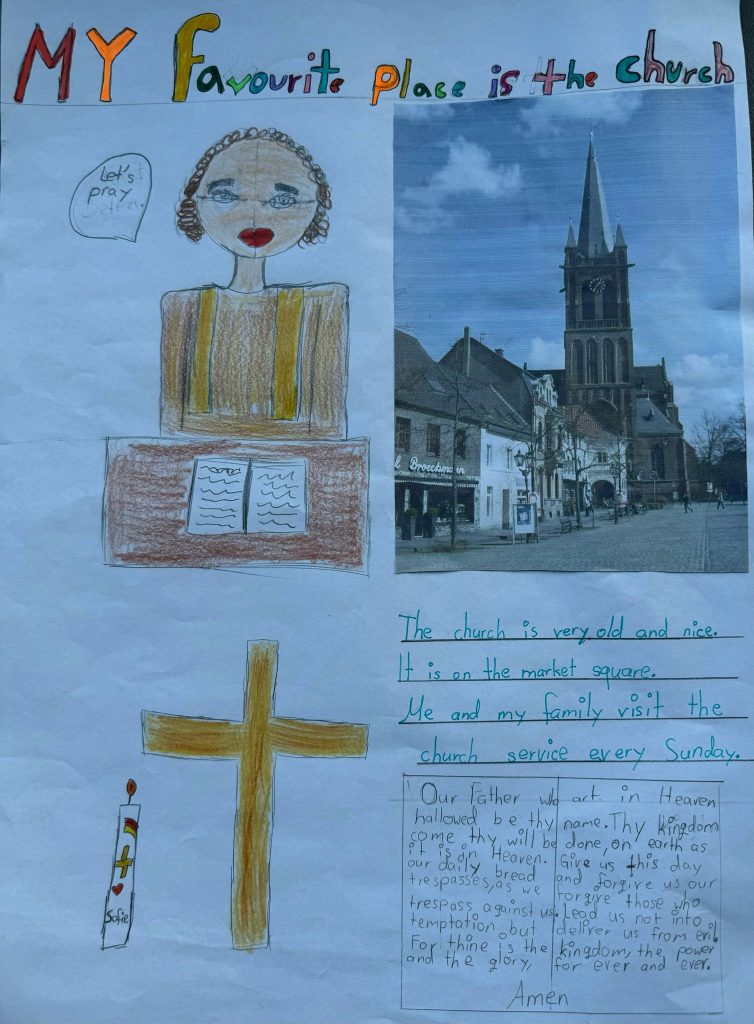 MY Favourite Place is the church
Let's
pray
Broeckmann
The church is very old and nice.
It is on the market square.
Me and my family visit the
church service every Sunday.
Our Father who art in Heaven
hallowed be thy name. Thy kingdom
come thy will be done, on earth as
it is in Heaven. Give us this day
our daily bread and forgive us our
trespasses, as we forgive those who
trespass against us. Lead us not into
temptation, but deliver us from evil.
For thine is the kingdom, the power
and the glory, for ever and ever.
Amen
Sofie